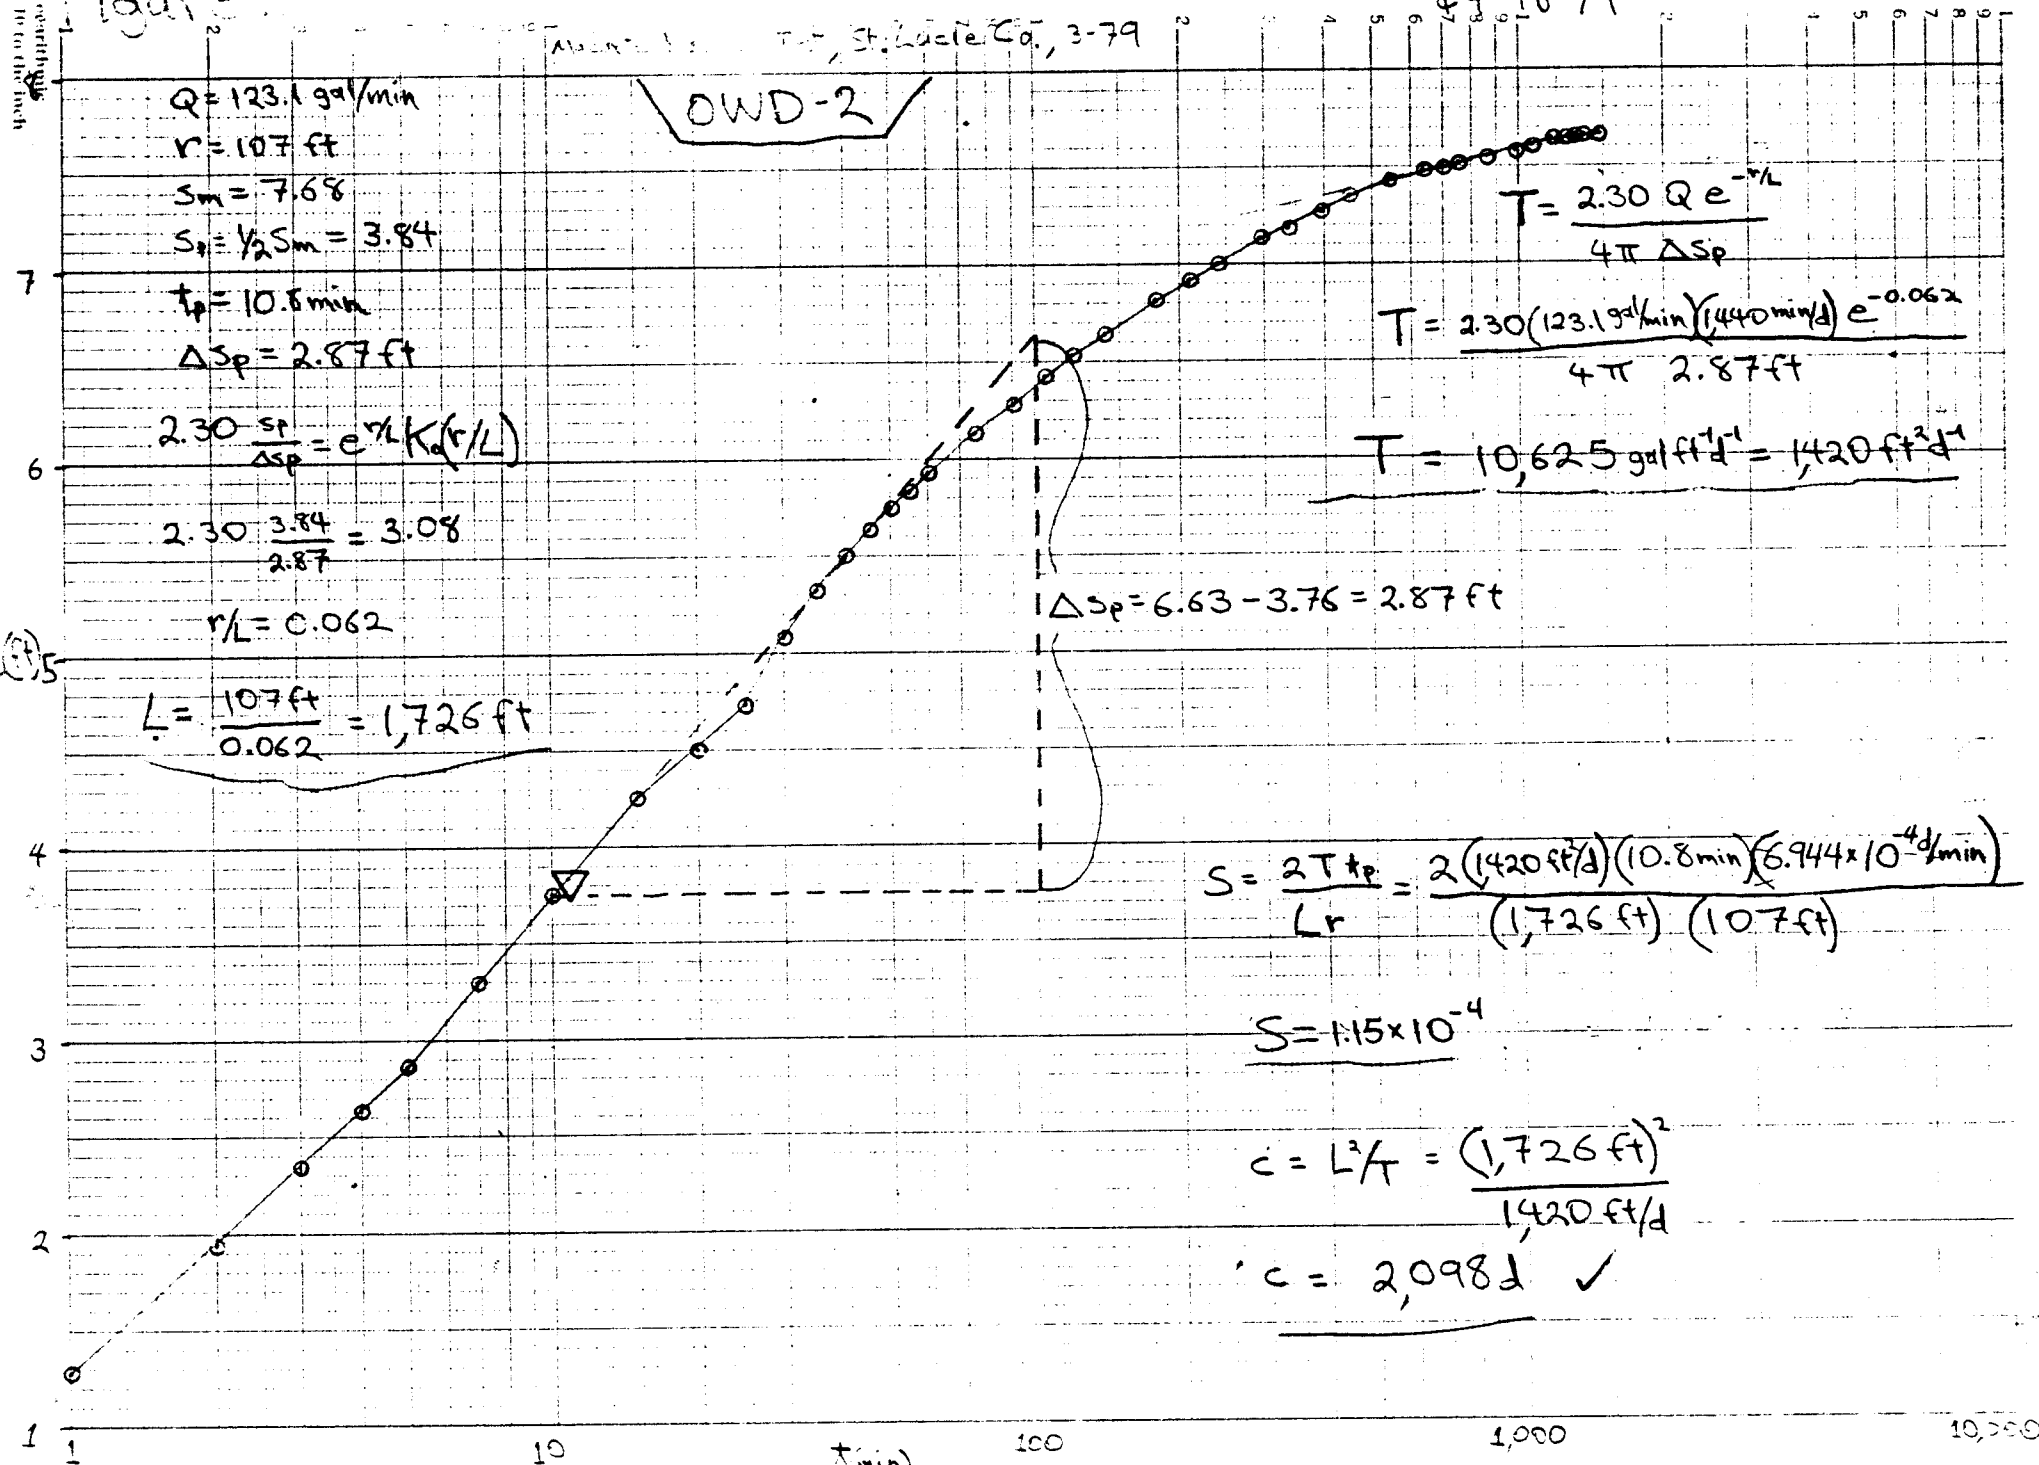 Figure
St. Lucie Co., 3-79
OWD-2
Q = 123.1 gal/min
r = 107 ft
Sm = 7.68
Sp = 1/2 Sm = 3.84
tp = 10.8 min
ΔSp = 2.87 ft
2.30 sp/Δsp = e^r/L K₀(r/L)
2.30 3.84/2.87 = 3.08
r/L = 0.062
L = 107 ft/0.062 = 1,726 ft
T = 2.30 Q e^-r/L / 4π ΔSp
T = 2.30 (123.1 gal/min)(1,440 min/d) e^-0.062 / 4π 2.87 ft
T = 10,625 gal ft⁻¹d⁻¹ = 1,420 ft²d⁻¹
ΔSp = 6.63 - 3.76 = 2.87 ft
S = 2 T tp / L r = 2 (1420 ft²/d)(10.8 min)(6.944 x 10⁻⁴ d/min) / (1,726 ft) (107 ft)
S = 1.15 x 10⁻⁴
c = L²/T = (1,726 ft)² / 1,420 ft/d
c = 2,098 d ✓
7
6
(ft) 5
4
3
2
1
1 10 100 1,000 10,000
t (min)